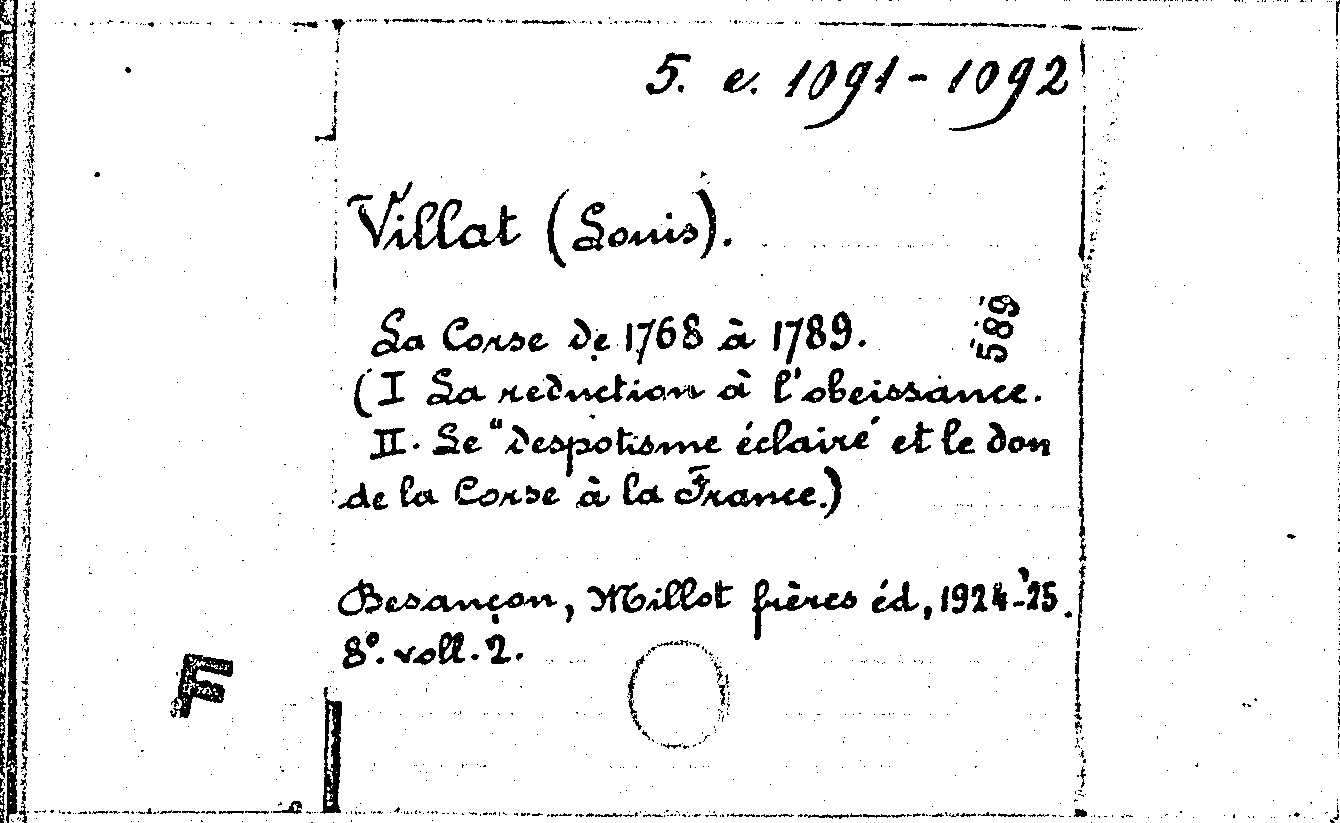 5. e. 1091-1092
Villat (Louis).
La Corse de 1768 à 1789.
589
(I La reduction à l'obeissance.
II. Le "despotisme éclairé" et le don
de la Corse à la France.)
Besançon, Millot frères éd, 1924-'25.
8°. voll. 2.
F